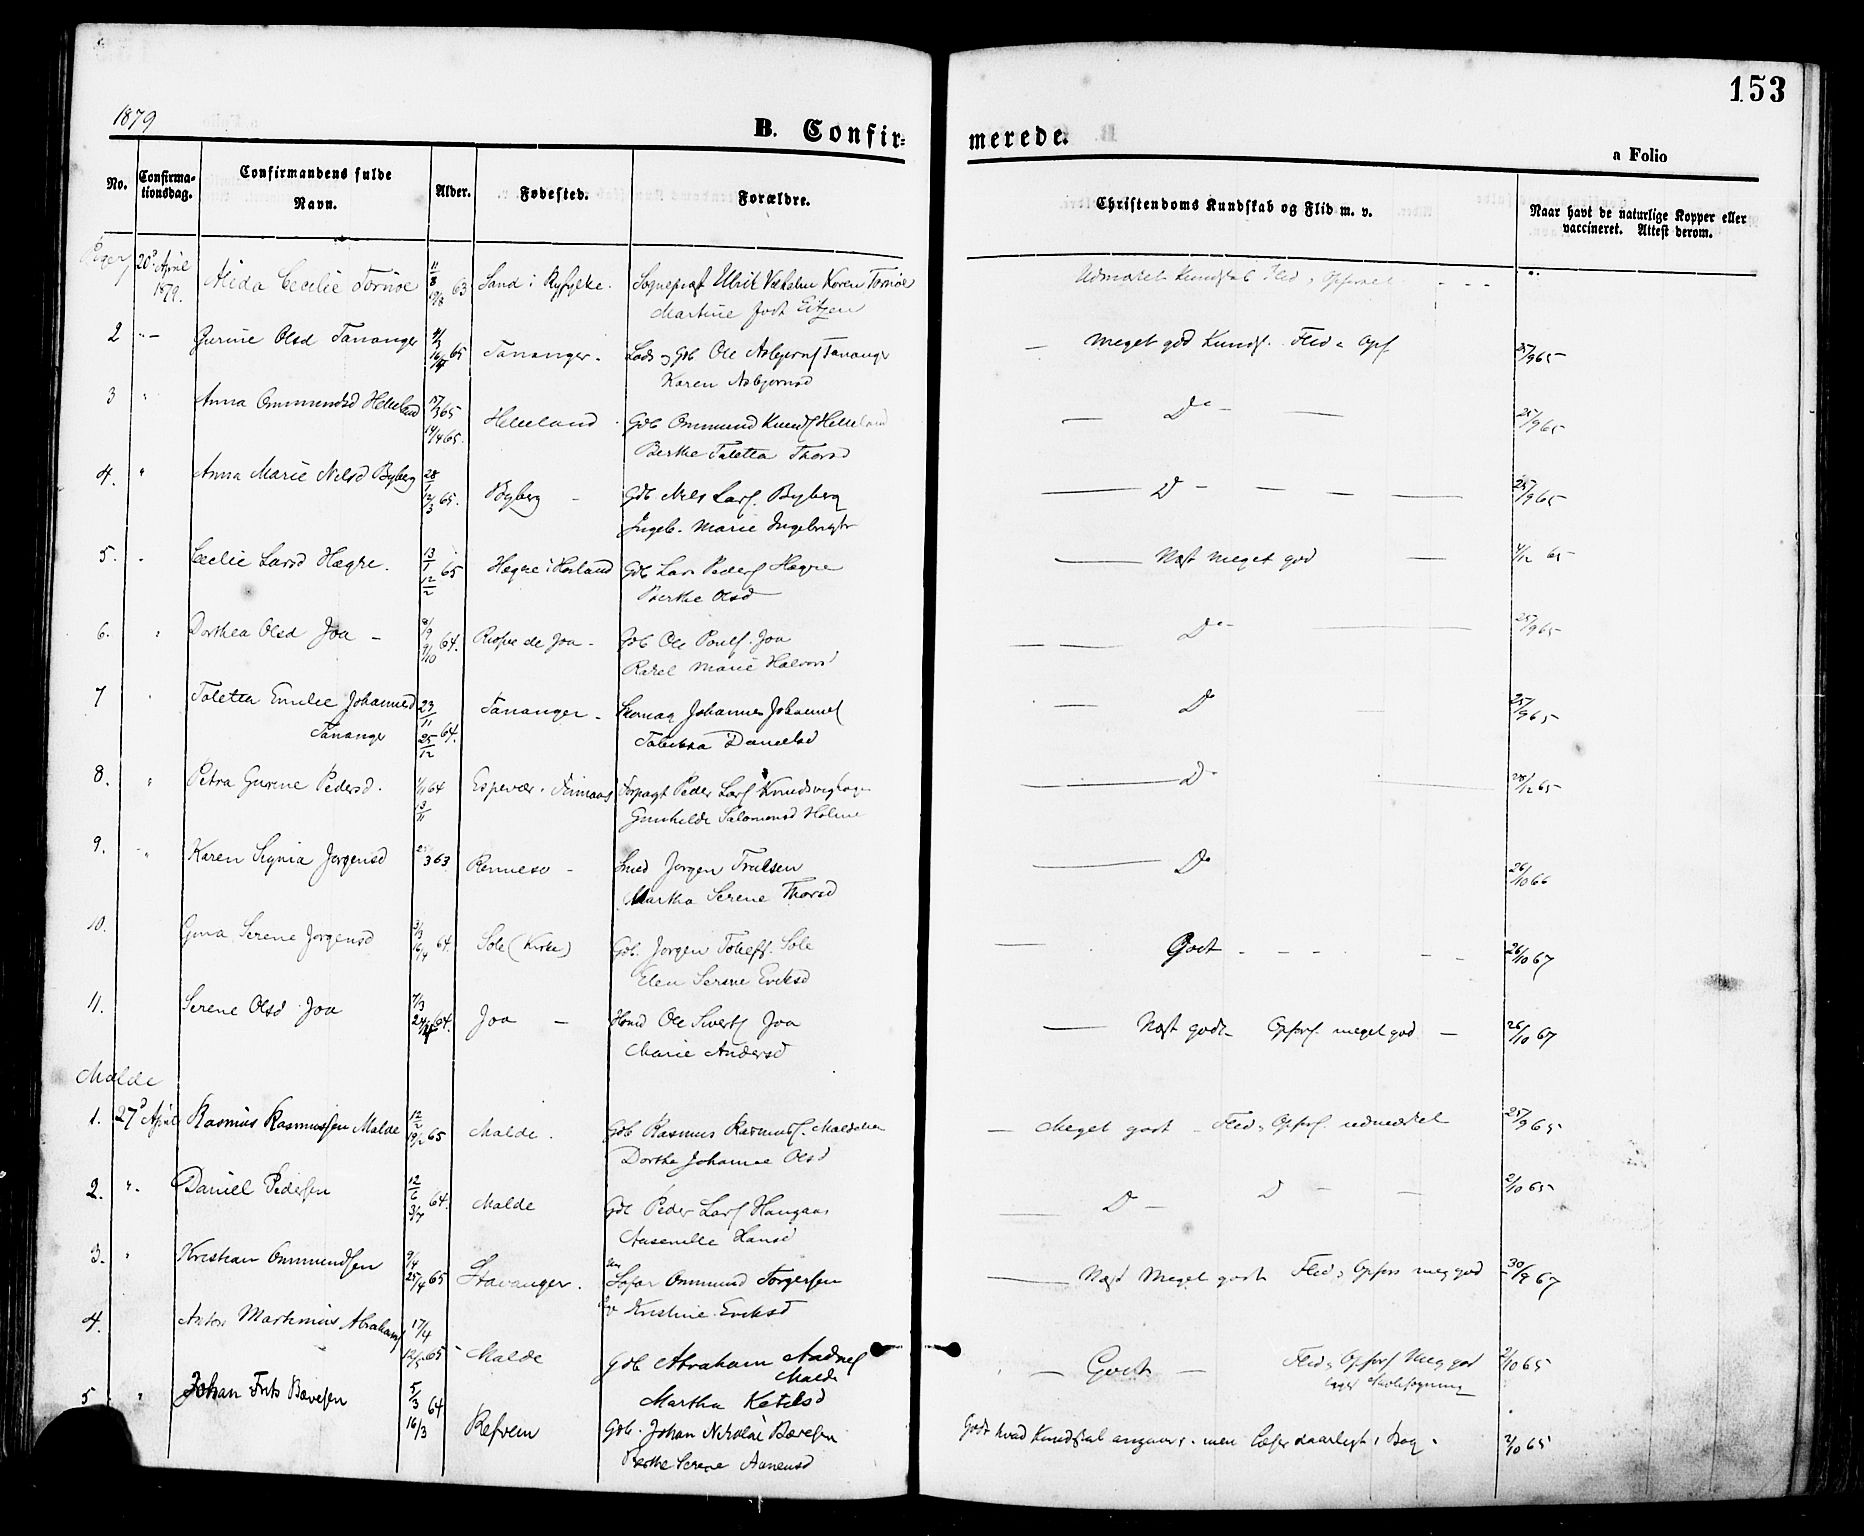 153
1879
B. Confir-
merede.
a Folio
No.
Confirma-
tionsdag.
Confirmandens fulde
Navn.
Alder.
Fødested.
Forældre.
Christendoms Kundskab og Flid m. v.
Naar havt de naturlige Kopper eller
vaccineret. Attest derom.
20d April
1879.
Alida Cecilie Tornøe
11/8 63
Sand i Ryfylke.
Sogneprest Ulrik Vilhelm Koren Tornøe
Martine født Eitzen
Udmærket Kundskab Flid & Opførsel
2
Gurine Olsd Tananger
65
Tananger.
Lods og Gdb Ole Asbjørns Tananger
Karen Asbjørnsd
Meget god Kunds. Flid & Opf
25/9 65
3
Anna Ommundsd Helleland
17/3 65
14/4 65.
Helleland
Gdb Ommund Knuds Helleland
Berthe Taletta Thorsd
Do
25/9 65
4.
Anna Marie Nelsd Byberg
28/1
12/3 65.
Byberg
Gdb Nels Lars. Byberg
Ingeb. Marie Ingebrigts
D
25/9 65
5.
Cecilie Larsd Hægre.
13/1
12/2 65
Hægre i Høiland
Gdb Lars Peders Hægre
Berthe Olsd
Næst meget god
4/12 65
6.
Dorthea Olsd Joa
9/10 64.
Joa
Gdb Ole Pouls. Joa
Rakel Marie Halvors
Do
25/9 65
7
Taletta Emilie Johannesd
Tananger
23/11
25/12 64.
Tananger
Skomag Johannes Johannes
Danielsd
Do
25/9 65
8.
Petra Gurine Pedersd.
64
13/11
Espevær i Finnaas
Forpagt Peder Lars
Gunhilde Salomonsd Holme
Do
28/12 65
9.
Karen Signia Jørgensd
3 63
Rennesø
Smed Jørgen Trulsen
Martha Serene Thorsd
Do
26/10 66
10.
Gina Serene Jørgensd
3/3
16/4 64.
Sole (Kirke)
Gdb. Jørgen Tollefs. Sole
Elen Serene Eriksd
Godt
26/10 67
11.
Serene Olsd Joa
7/3
64.
Joa
Hmd Ole Siverts Joa
Marie Andersd
Næst godt Opførs. meget god
26/10 67
Malde
1.
27d April
Rasmus Rasmussen Malde
12/2
19/2 65
Malde.
Gdb Rasmus Rasmuss.
Dorthe Johanne Olsd
Meget godt Flid & Opførs. udmærket
25/9 65
2.
Daniel Pedersen
12/6
3/7 64.
Malde
Gdb Peder Lars Haugaas
Hansd
D D
2/10 65
3.
Kristian Ommundsen
9/4
25/4 65
Stavanger.
Ommund Torgersen
Kristine Eriksd
Næst Meget godt Flid & Opførs meg god
30/9 67
4.
Anton Martinius Abrahams
17/4
12/5 65
Malde
Gdb Abraham Aadnes
Malde
Martha Ketilsd
Godt Flid & Opførs Meg god
2/10 65
5
Johan Frits Bævesen
5/3 64
16/3
Refvem
Gdb. Johan Nikolai Bævesen
Berthe Serene Aanensd
Godt hvad Kundskab angaaer, men læser daarligt i Bog.
2/10 65